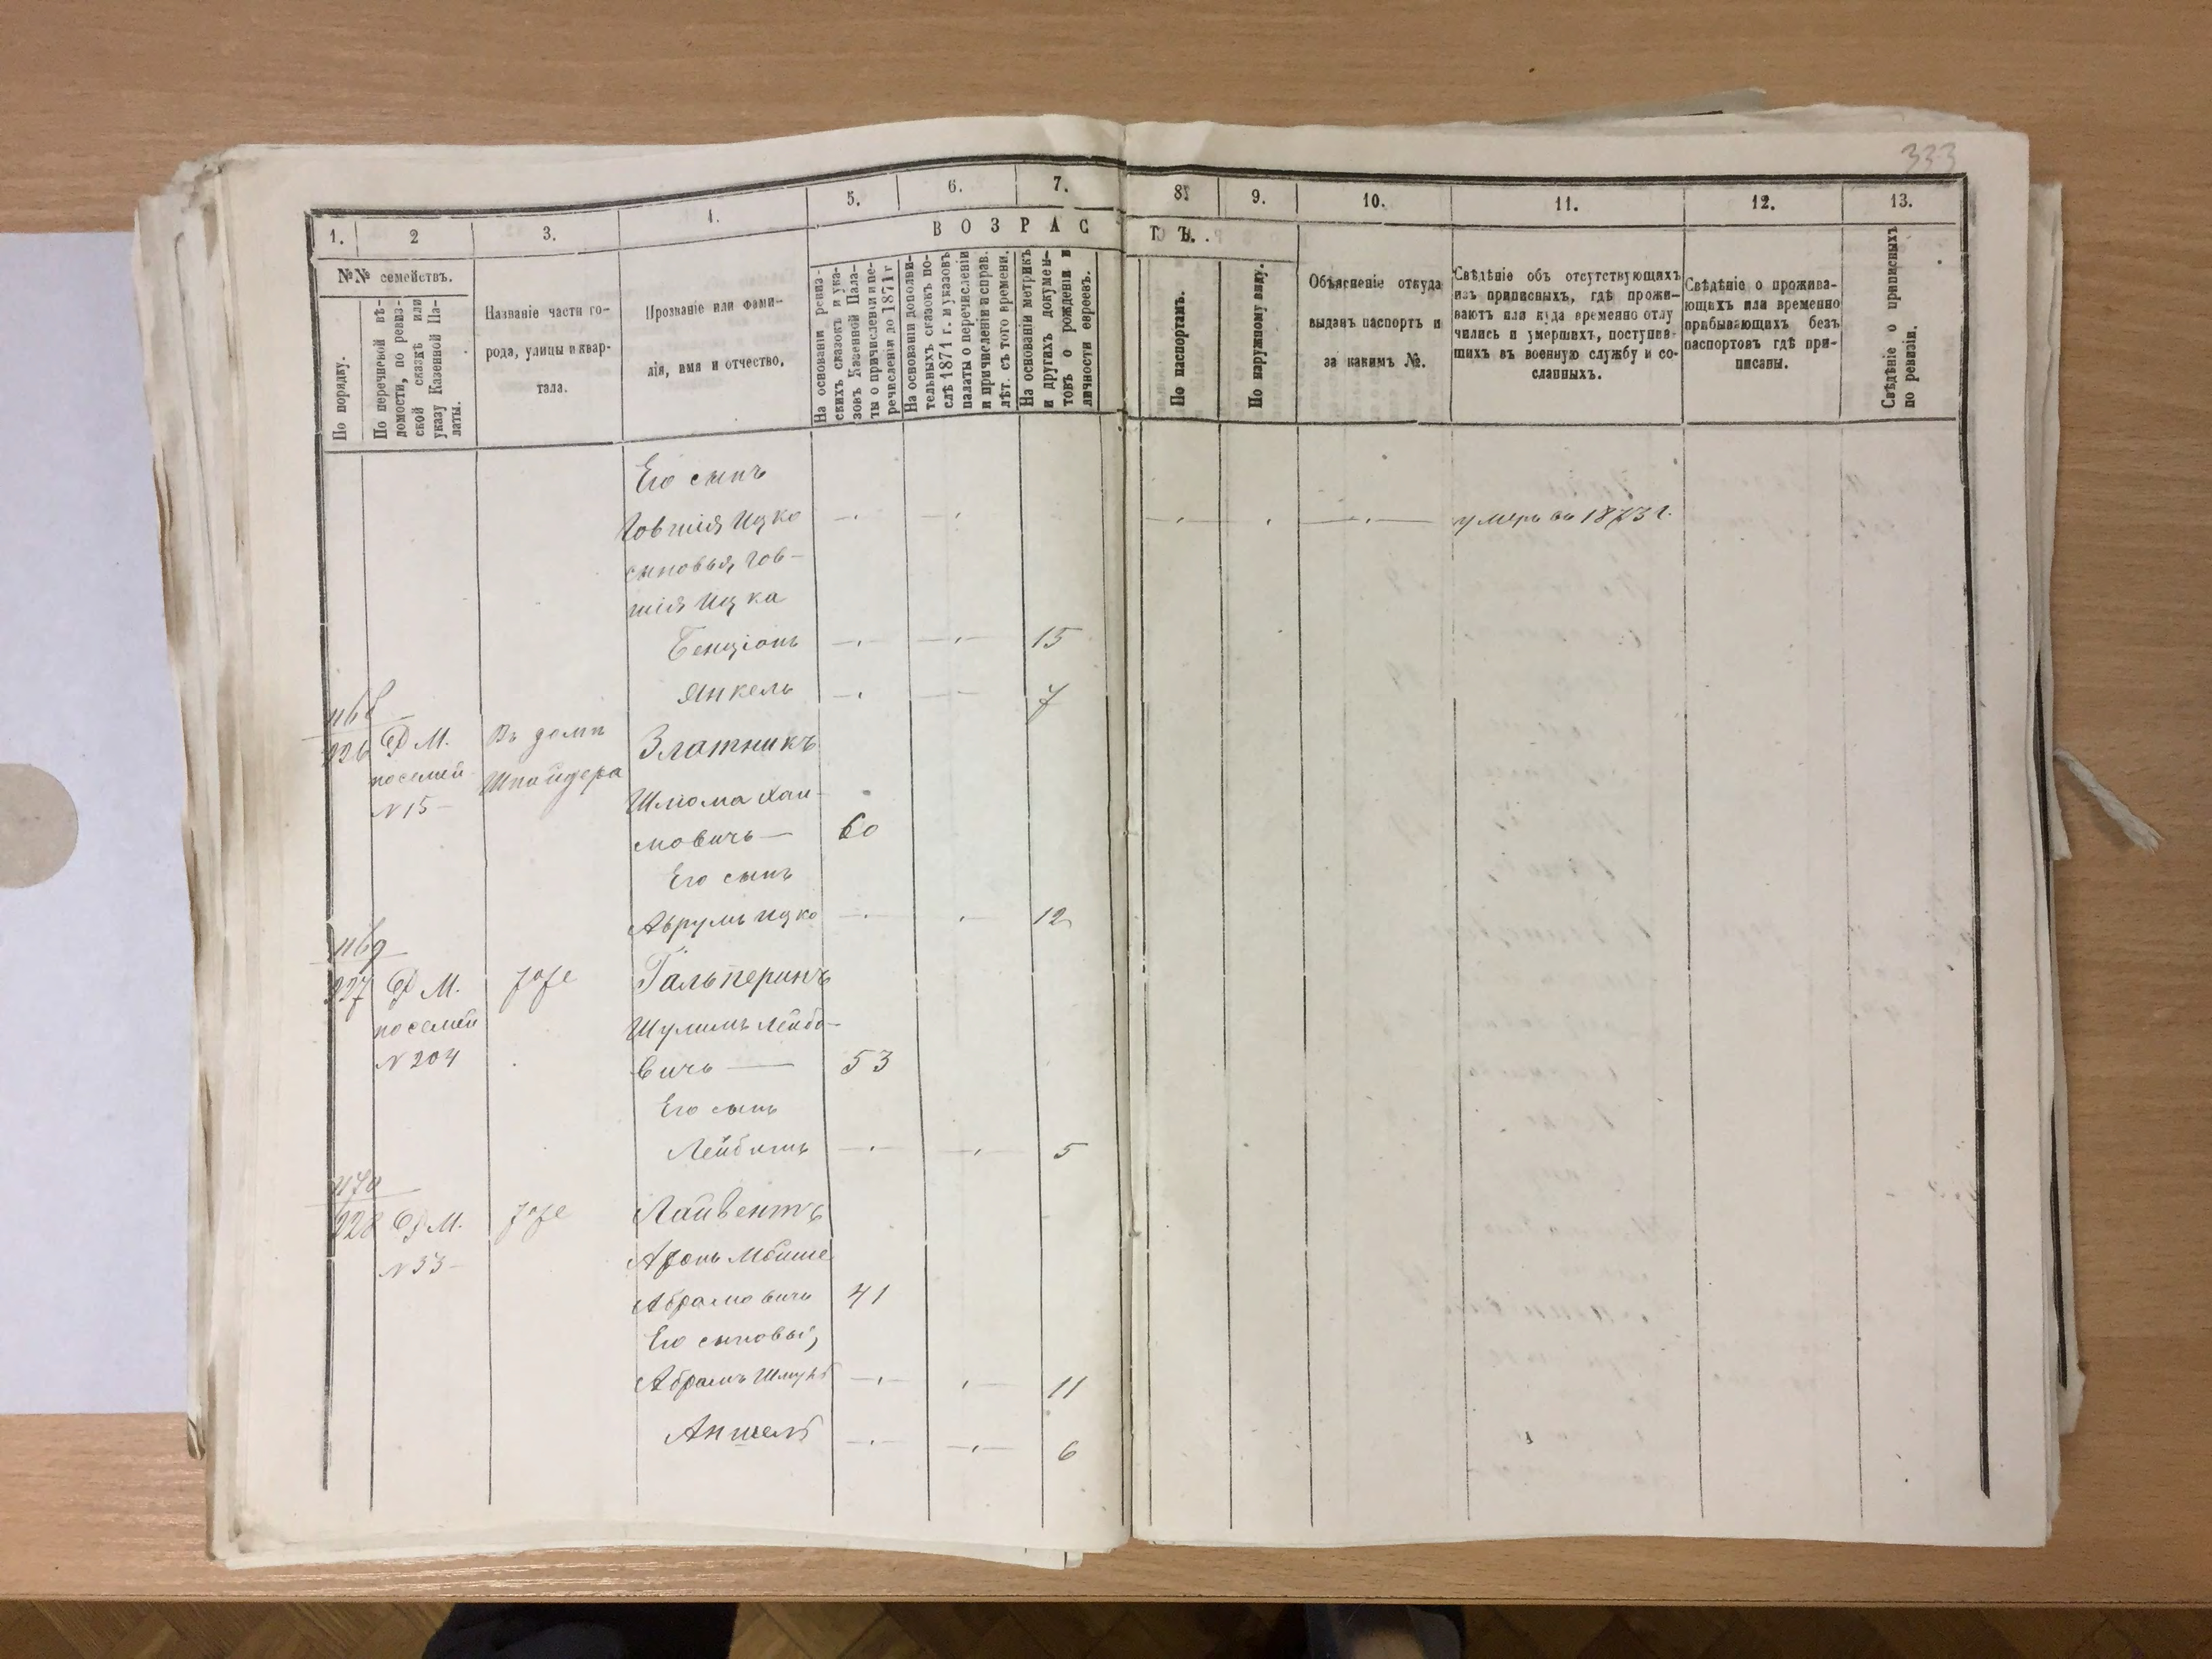 333
1.
2
3.
4.
5.
6.
7.
8.
9.
10.
11.
12.
13.
№№ семействъ.
По порядку.
По перечневой вѣ-
домости, по ревиз-
ской сказкѣ или
указу Казенной Па-
латы.
Названіе части го-
рода, улицы и квар-
тала.
Прозваніе или фами-
лія, имя и отчество.
ВОЗРАС
ТЪ.
На основаніи ревиз-
скихъ сказокъ и ука-
зовъ Казенной Пала-
ты о причисленіи и пе-
речисленіи до 1871 г
На основаніи дополни-
тельныхъ сказокъ по-
слѣ 1871 г. и указовъ
палаты о перечисленіи
и причисленіи и справ.
лѣт. съ того времени.
На основаніи метрикъ
и другихъ докумен-
товъ о рожденіи и
личности евреевъ.
По паспортамъ.
По наружному виду.
Объясненіе откуда
выданъ паспортъ и
за какимъ №.
Свѣдѣніе объ отсутствующихъ
изъ приписныхъ, гдѣ прожи-
ваютъ или куда временно отлу
чились и умершихъ, поступив-
шихъ въ военную службу и со-
сланныхъ.
Свѣдѣніе о прожива-
ющихъ или временно
прибывающихъ безъ
паспортовъ гдѣ при-
писаны.
Свѣдѣніе о приписныхъ
по ревизіи.
Его сынъ
Говшія Ицко
умеръ въ 1873 г.
сыновья Гов-
шія Ицка
Бенціонъ 15
Янкель 7
1168
926 М. Въ домѣ Златникъ
посемей Шнайдера
N 15 Шлома Хаи-
мовичъ — 60
Его сынъ
Аврумъ Ицко 12
1169
927 М. Гальперинъ
посемей Шулимъ Лейбо-
N 204 вичъ — 53
Его сынъ
Лейбишъ 5
1170
928 М. Лайвентъ
N 33 Аронъ Мойше
Абрамовичъ 41
Его сыновья,
Абрамъ 11
Аншель 6